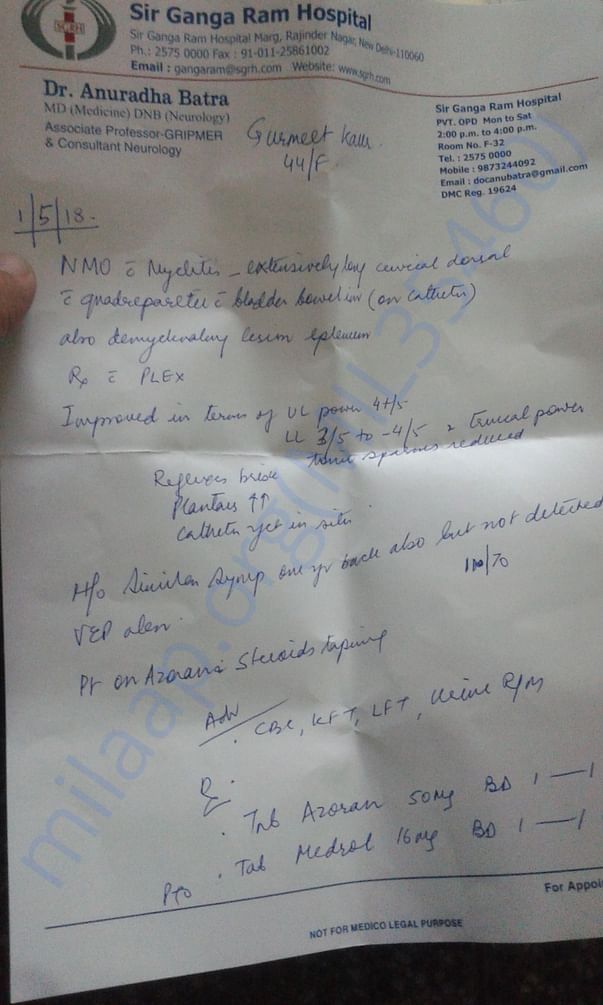 SGRH
Sir Ganga Ram Hospital
Sir Ganga Ram Hospital Marg, Rajinder Nagar, New Delhi-110060
Ph.: 2575 0000 Fax : 91-011-25861002
Email : gangaram@sgrh.com Website: www.sgrh.com
Dr. Anuradha Batra
MD (Medicine) DNB (Neurology)
Associate Professor-GRIPMER
& Consultant Neurology
Gurmeet Kaur
44/F
Sir Ganga Ram Hospital
PVT. OPD Mon to Sat
2:00 p.m. to 4:00 p.m.
Room No. F-32
Tel. : 2575 0000
Mobile : 9873244092
Email : docanubatra@gmail.com
DMC Reg. 19624
1/5/18.
NMO c̄ Myelitis - extensively long cervical dorsal
c̄ quadreparetic c̄ bladder bowel inv (on catheter)
also demyelinating lesion splenium
Rx c̄ PLEX
Improved in terms of UL power 4+/5
LL 3/5 to -4/5 truncal power
spasms reduced
Reflexes brisk
Plantars ↑↑
catheter yet in situ
H/o Similar Symp one yr back also but not detected
110/70
VEP
Pt on Azoran Steroids taping
Adv
CBC, KFT, LFT, Urine R/M
Rx
Tab Azoran 50mg BD 1—1
Tab Medrol 16mg BD 1—1
PTO
For Appoi
NOT FOR MEDICO LEGAL PURPOSE